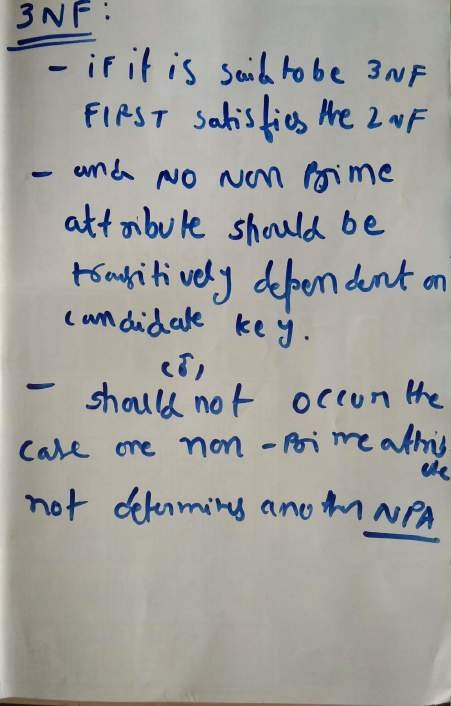 3NF:
- if it is said to be 3NF
FIRST satisfies the 2NF
- and NO NON Prime
attribute should be
transitively dependent on
candidate key.
or,
- should not occur the
case one non-prime attrib
ute
not determines another NPA